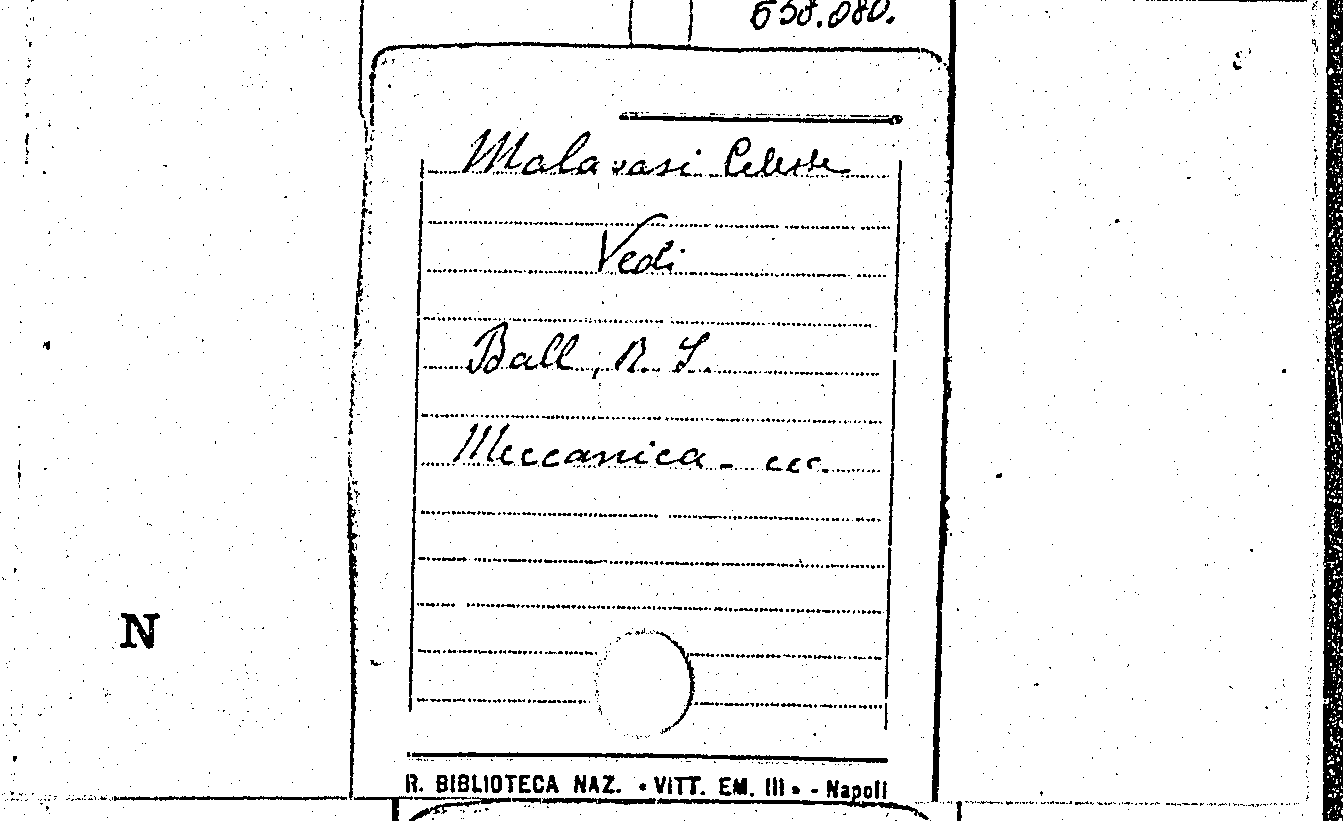 658.080.
Malavasi Celeste
Vedi
Ball, R. S.
Meccanica - ecc.
N
R. BIBLIOTECA NAZ. «VITT. EM. III» - Napoli